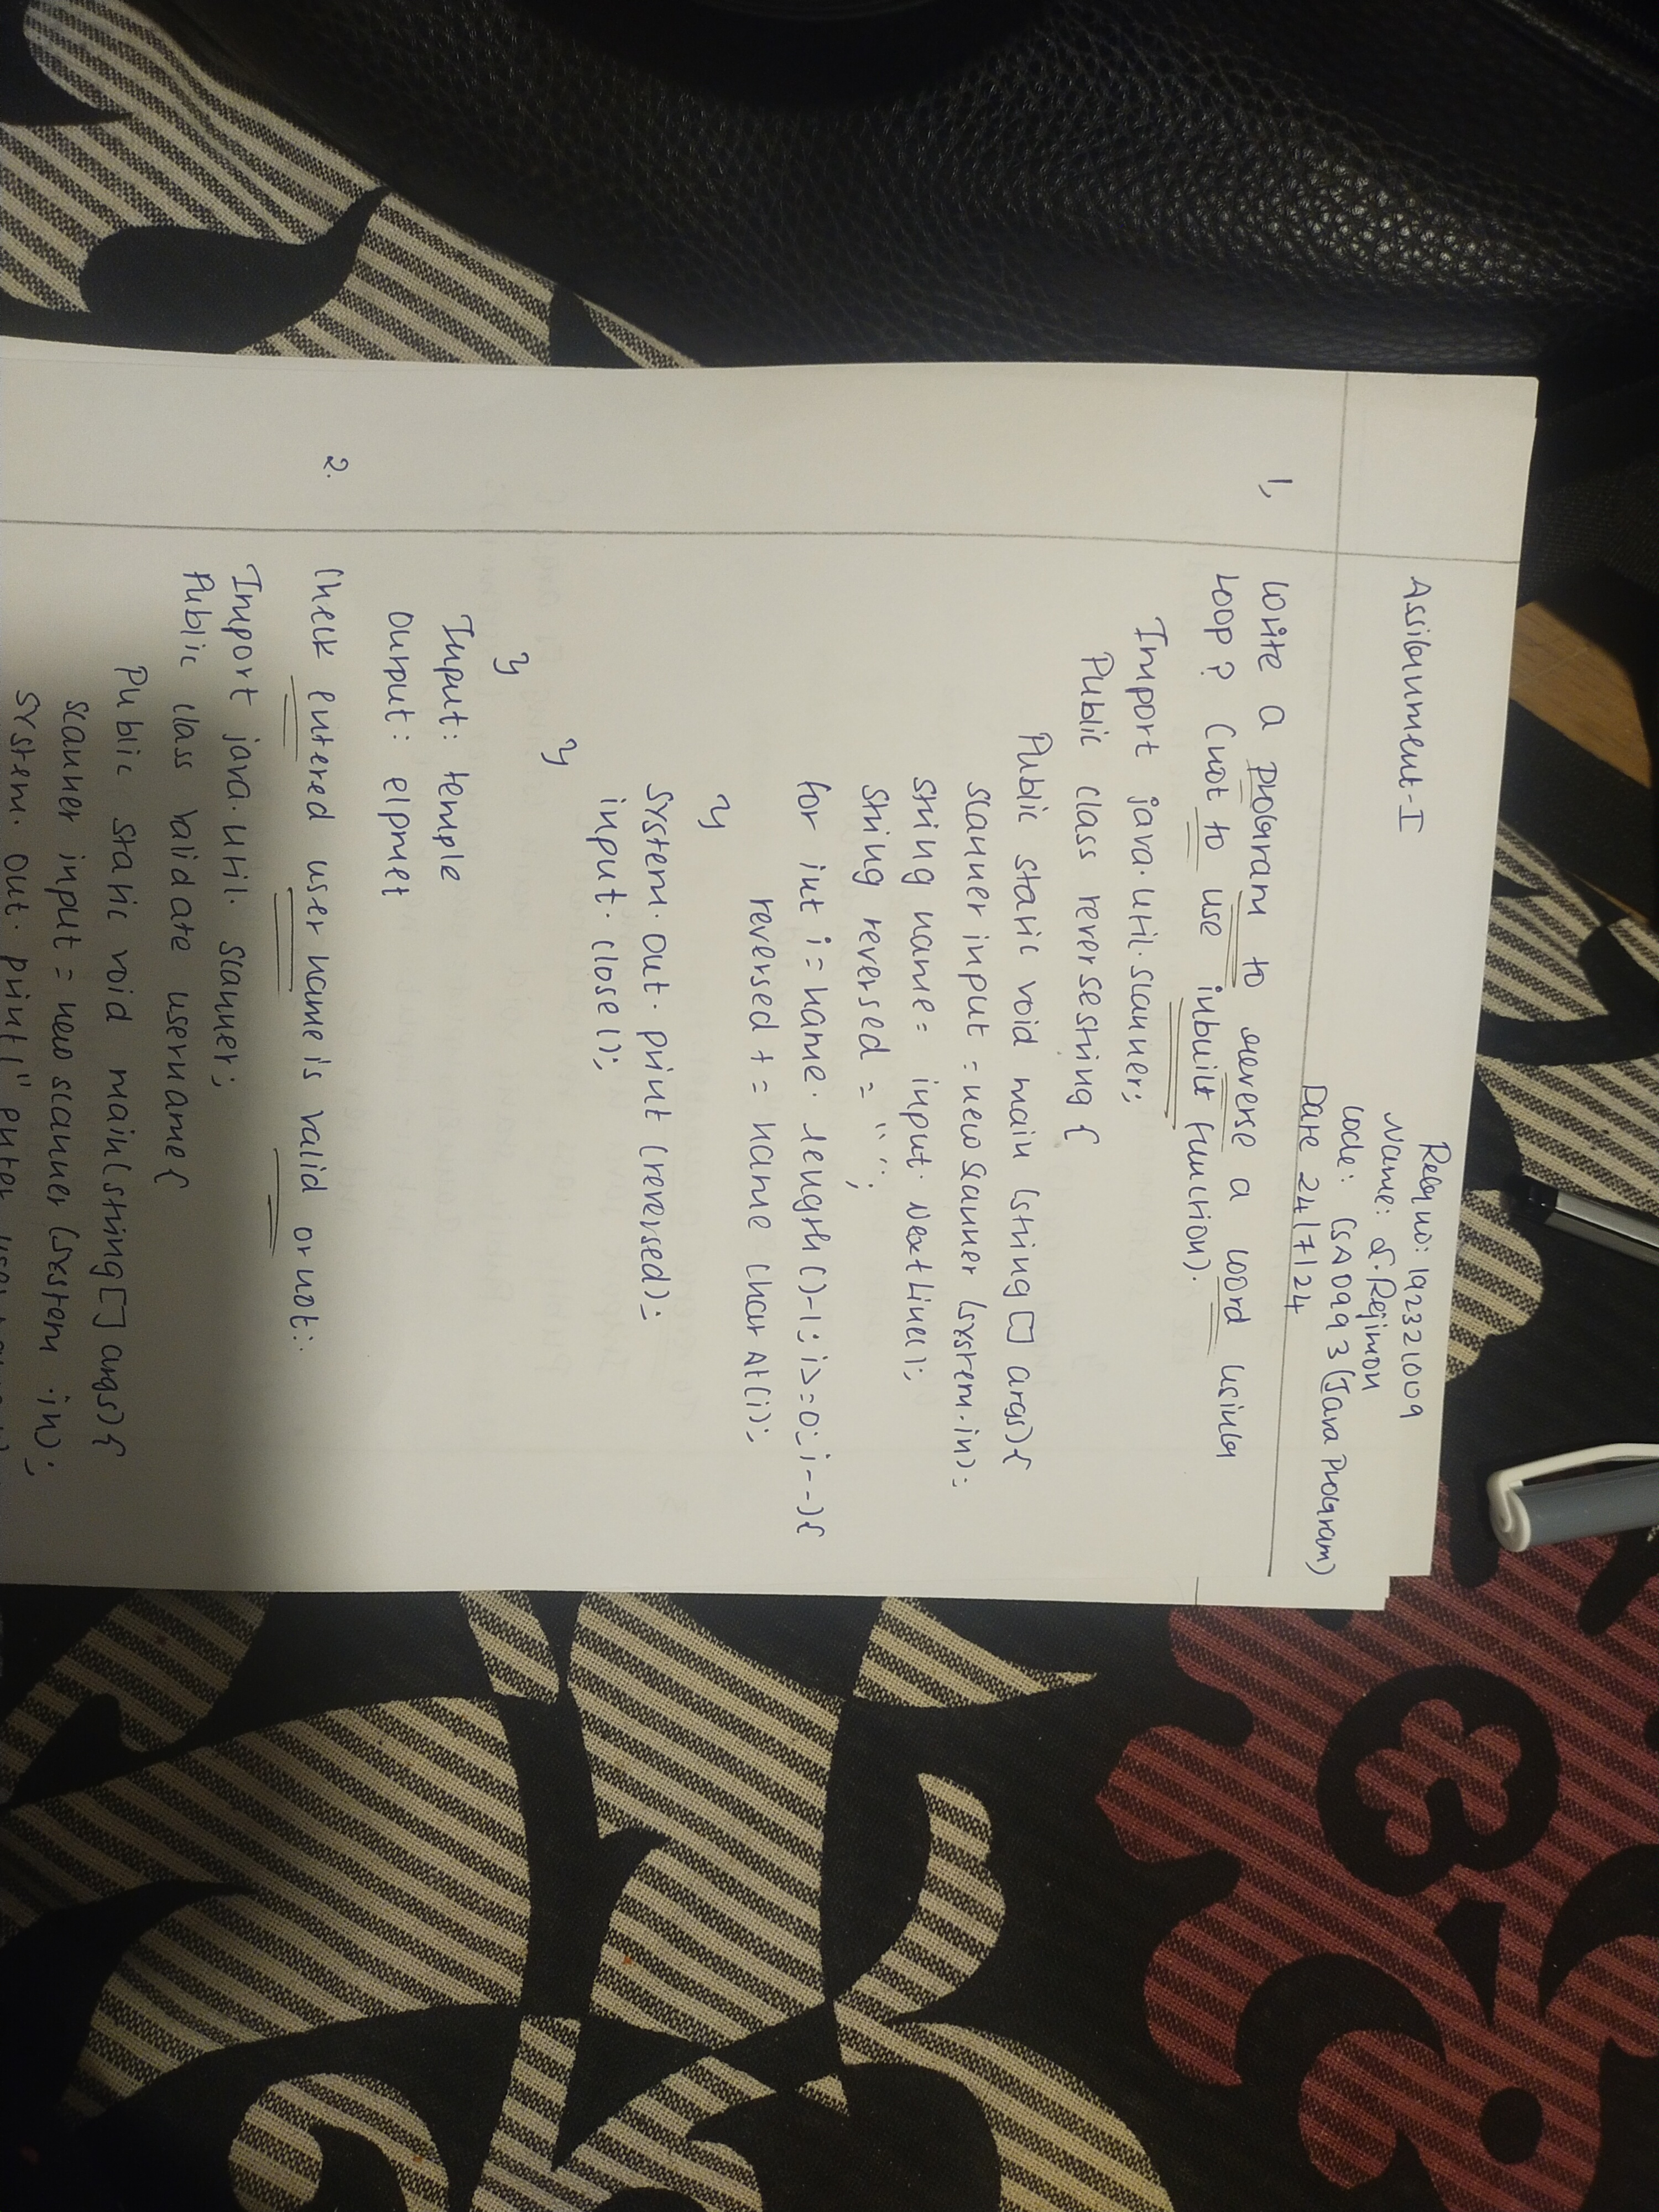 Reg no: 192321009
Name: S. Rejimon
Assignment-I
Code: CSA0993 (Java Program)
Date 24/7/24
1, Write a program to reverse a word using
Loop? (not to use inbuilt function).
Import java.util.scanner;
Public class reversestring {
Public static void main (string [] args) {
scanner input = new scanner (system.in);
string name = input. Next Line();
string reversed = " ";
for int i = name. length()-1; i>=0; i--){
reversed + = name char At(i);
}
system. out. print (reversed);
input. close();
}
}
Input: temple
output: elpmet
2. Check entered user name is valid or not:
Import java.util. scanner;
Public class validate username {
Public static void main(string [] args) {
scanner input = new scanner (system in);
system. out. print (" enter